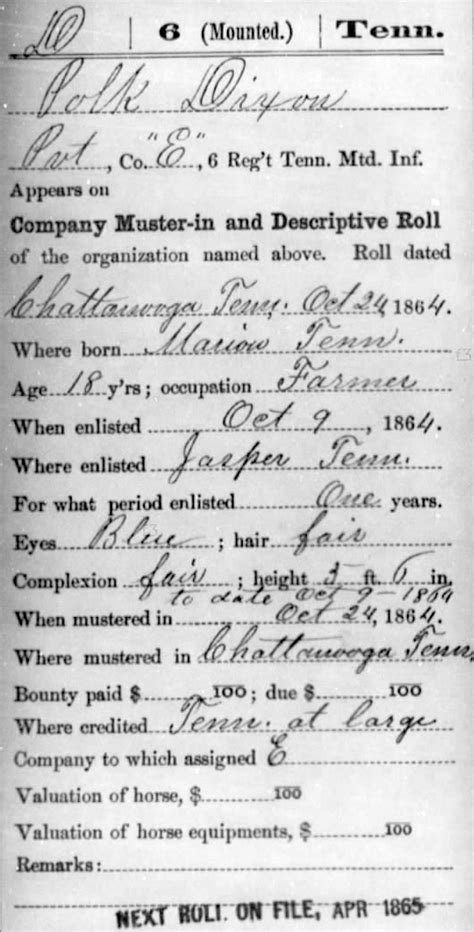 D | 6 (Mounted.) | Tenn.
Polk Dixon
Pvt, Co. "E", 6 Reg't Tenn. Mtd. Inf.
Appears on
Company Muster-in and Descriptive Roll
of the organization named above. Roll dated
Chattanooga Tenn. Oct 24, 1864.
Where born Marion Tenn.
Age 18 y'rs; occupation Farmer
When enlisted Oct 9, 1864.
Where enlisted Jasper Tenn.
For what period enlisted One years.
Eyes Blue; hair fair
Complexion fair; height 5 ft. 6 in.
to date Oct 9-1864
When mustered in Oct 24, 1864.
Where mustered in Chattanooga Tenn.
Bounty paid $ 100; due $ 100
Where credited Tenn. at large
Company to which assigned E
Valuation of horse, $ 100
Valuation of horse equipments, $ 100
Remarks:
NEXT ROLL ON FILE, APR 1865